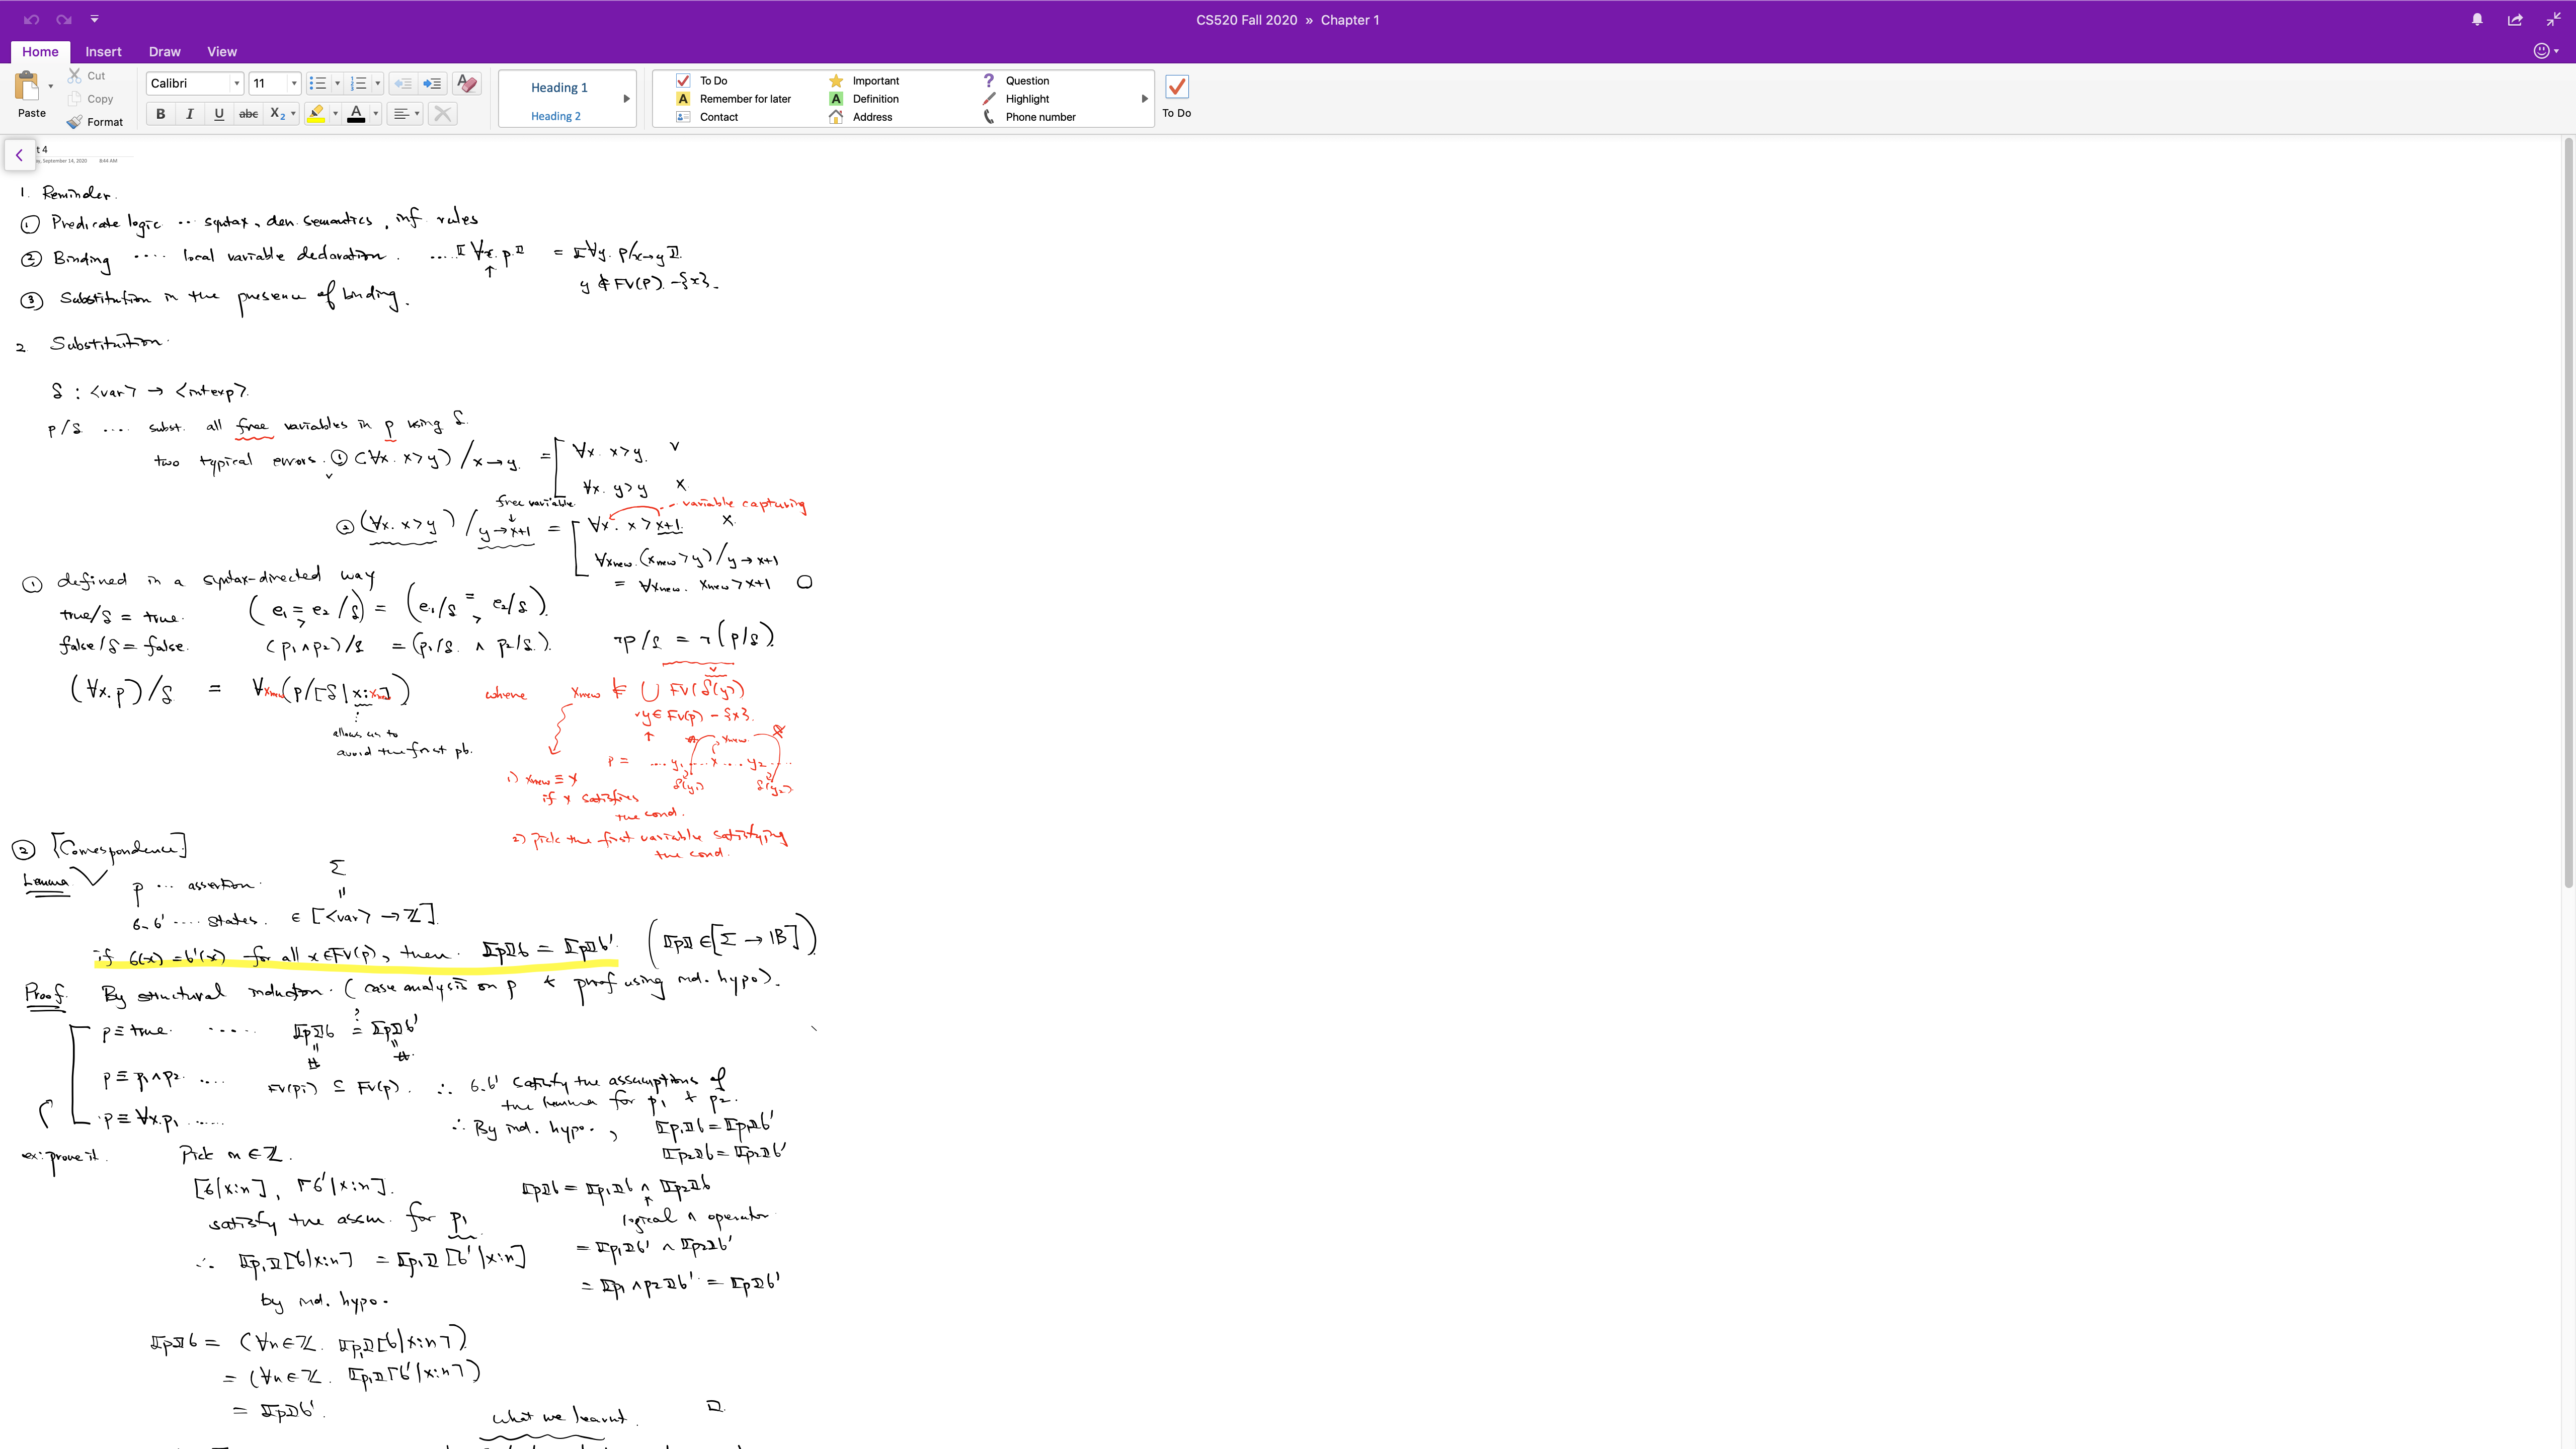 CS520 Fall 2020 » Chapter 1
Home Insert Draw View
Paste
Cut
Copy
Format
Calibri 11
B I U abc X₂ A
Heading 1
Heading 2
To Do Important Question
Remember for later Definition Highlight
Contact Address Phone number
To Do
t 4
September 14, 2020 8:44 AM
1. Reminder.
① Predicate logic ·· syntax, den. semantics, inf. rules
② Binding ···· local variable declaration. ....⟦∀x. p⟧ = ⟦∀y. p/x→y⟧.
↑
y ∉ FV(p) - {x}.
③ Substitution in the presence of binding.
2 Substituition.
δ : <var> → <intexp>.
p/δ .... subst. all free variables in p using δ.
two typical errors. ① (∀x. x>y) / x→y. = [ ∀x. x>y. v
∀x. y>y x
free variable
↓
variable capturing
② (∀x. x>y) / y→x+1 = [ ∀x. x > x+1. x
∀xnew. (xnew > y) / y→x+1
= ∀xnew. xnew > x+1 O
① defined in a syntax-directed way
true/δ = true. (e₁ = e₂ /δ) = (e₁/δ = e₂/δ).
> >
false/δ = false. (p₁ ∧ p₂)/δ = (p₁/δ. ∧ p₂/δ.). ¬p/δ = ¬(p/δ)
(∀x.p)/δ = ∀xnew(p/[δ|x:xnew]) where xnew ∉ ∪ FV(δ(y))
y ∈ FV(p) - {x}.
allows us to
avoid the first pb.
xnew
p = .... y₁ ....x .... y₂ ....
δ(y₁) δ(y₂)
1) xnew ≡ x
if x satisfies
the cond.
2) pick the first variable satisfying
the cond.
② [Correspondence]
Σ
Lemma p ··· assertion.
॥
σ, σ' .... states. ∈ [<var> → ℤ].
if σ(x) = σ'(x) for all x∈FV(p), then ⟦p⟧σ = ⟦p⟧σ'. (⟦p⟧ ∈ [Σ → 𝔹])
Proof. By structural induction. (case analysis on p + proof using ind. hypo).
p ≡ true. ..... ⟦p⟧σ ≟ ⟦p⟧σ'
॥ ॥
tt tt
p ≡ p₁∧p₂. .... FV(pi) ⊆ FV(p). ∴ σ, σ' satisfy the assumptions of
the lemma for p₁ + p₂.
p ≡ ∀x.p₁ ......
∴ By ind. hypo., ⟦p₁⟧σ = ⟦p₁⟧σ'
⟦p₂⟧σ = ⟦p₂⟧σ'
ex: prove it. Pick n ∈ ℤ.
[σ|x:n], [σ'|x:n].
satisfy the assm. for p₁
∴ ⟦p₁⟧[σ|x:n] = ⟦p₁⟧[σ'|x:n]
by ind. hypo.
⟦p⟧σ = ⟦p₁⟧σ ∧ ⟦p₂⟧σ
↑
logical ∧ operator
= ⟦p₁⟧σ' ∧ ⟦p₂⟧σ'
= ⟦p₁ ∧ p₂⟧σ' = ⟦p⟧σ'
⟦p⟧σ = (∀n∈ℤ. ⟦p₁⟧[σ|x:n])
= (∀n∈ℤ. ⟦p₁⟧[σ'|x:n])
= ⟦p⟧σ'. □
what we learnt.